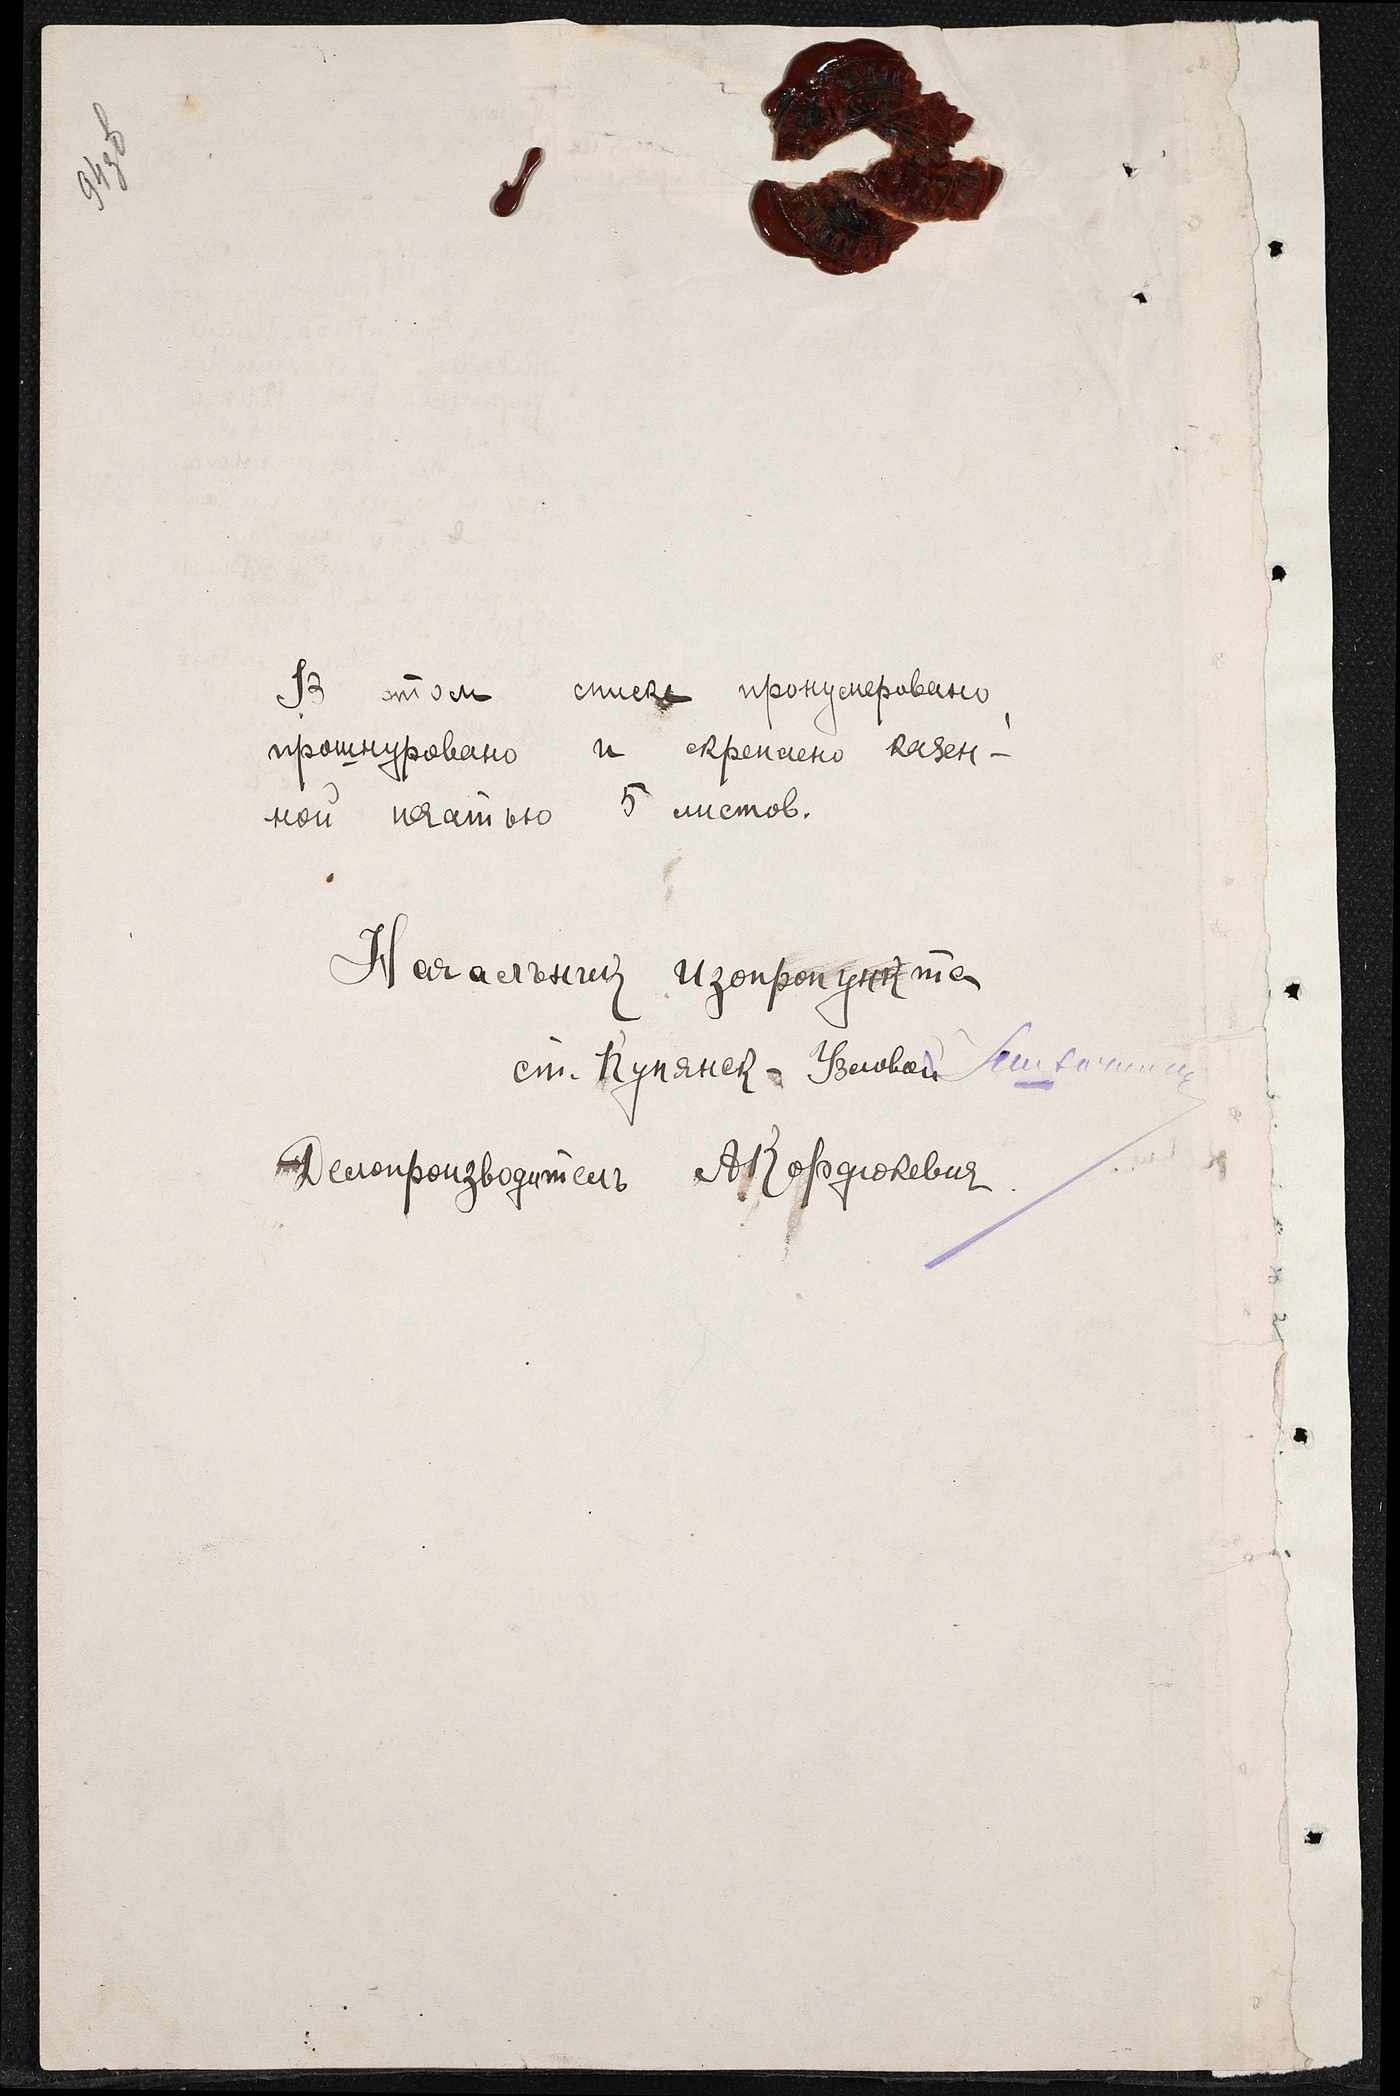 94зв
В этом списке пронумеровано,
прошнуровано и скреплено казен-
ной печатью 5 листов.
Начальник изопропункта
ст. Купянск-Узловой
Делопроизводитель АКордюкевич